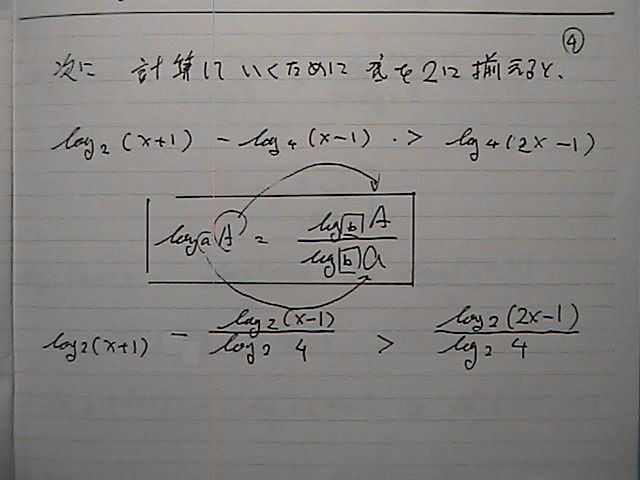 ④
次に 計算していくために 底を2に揃えると、
log₂(x+1) - log₄(x-1) > log₄(2x-1)
logₐA = log_b A / log_b a
log₂(x+1) - log₂(x-1) / log₂4 > log₂(2x-1) / log₂4